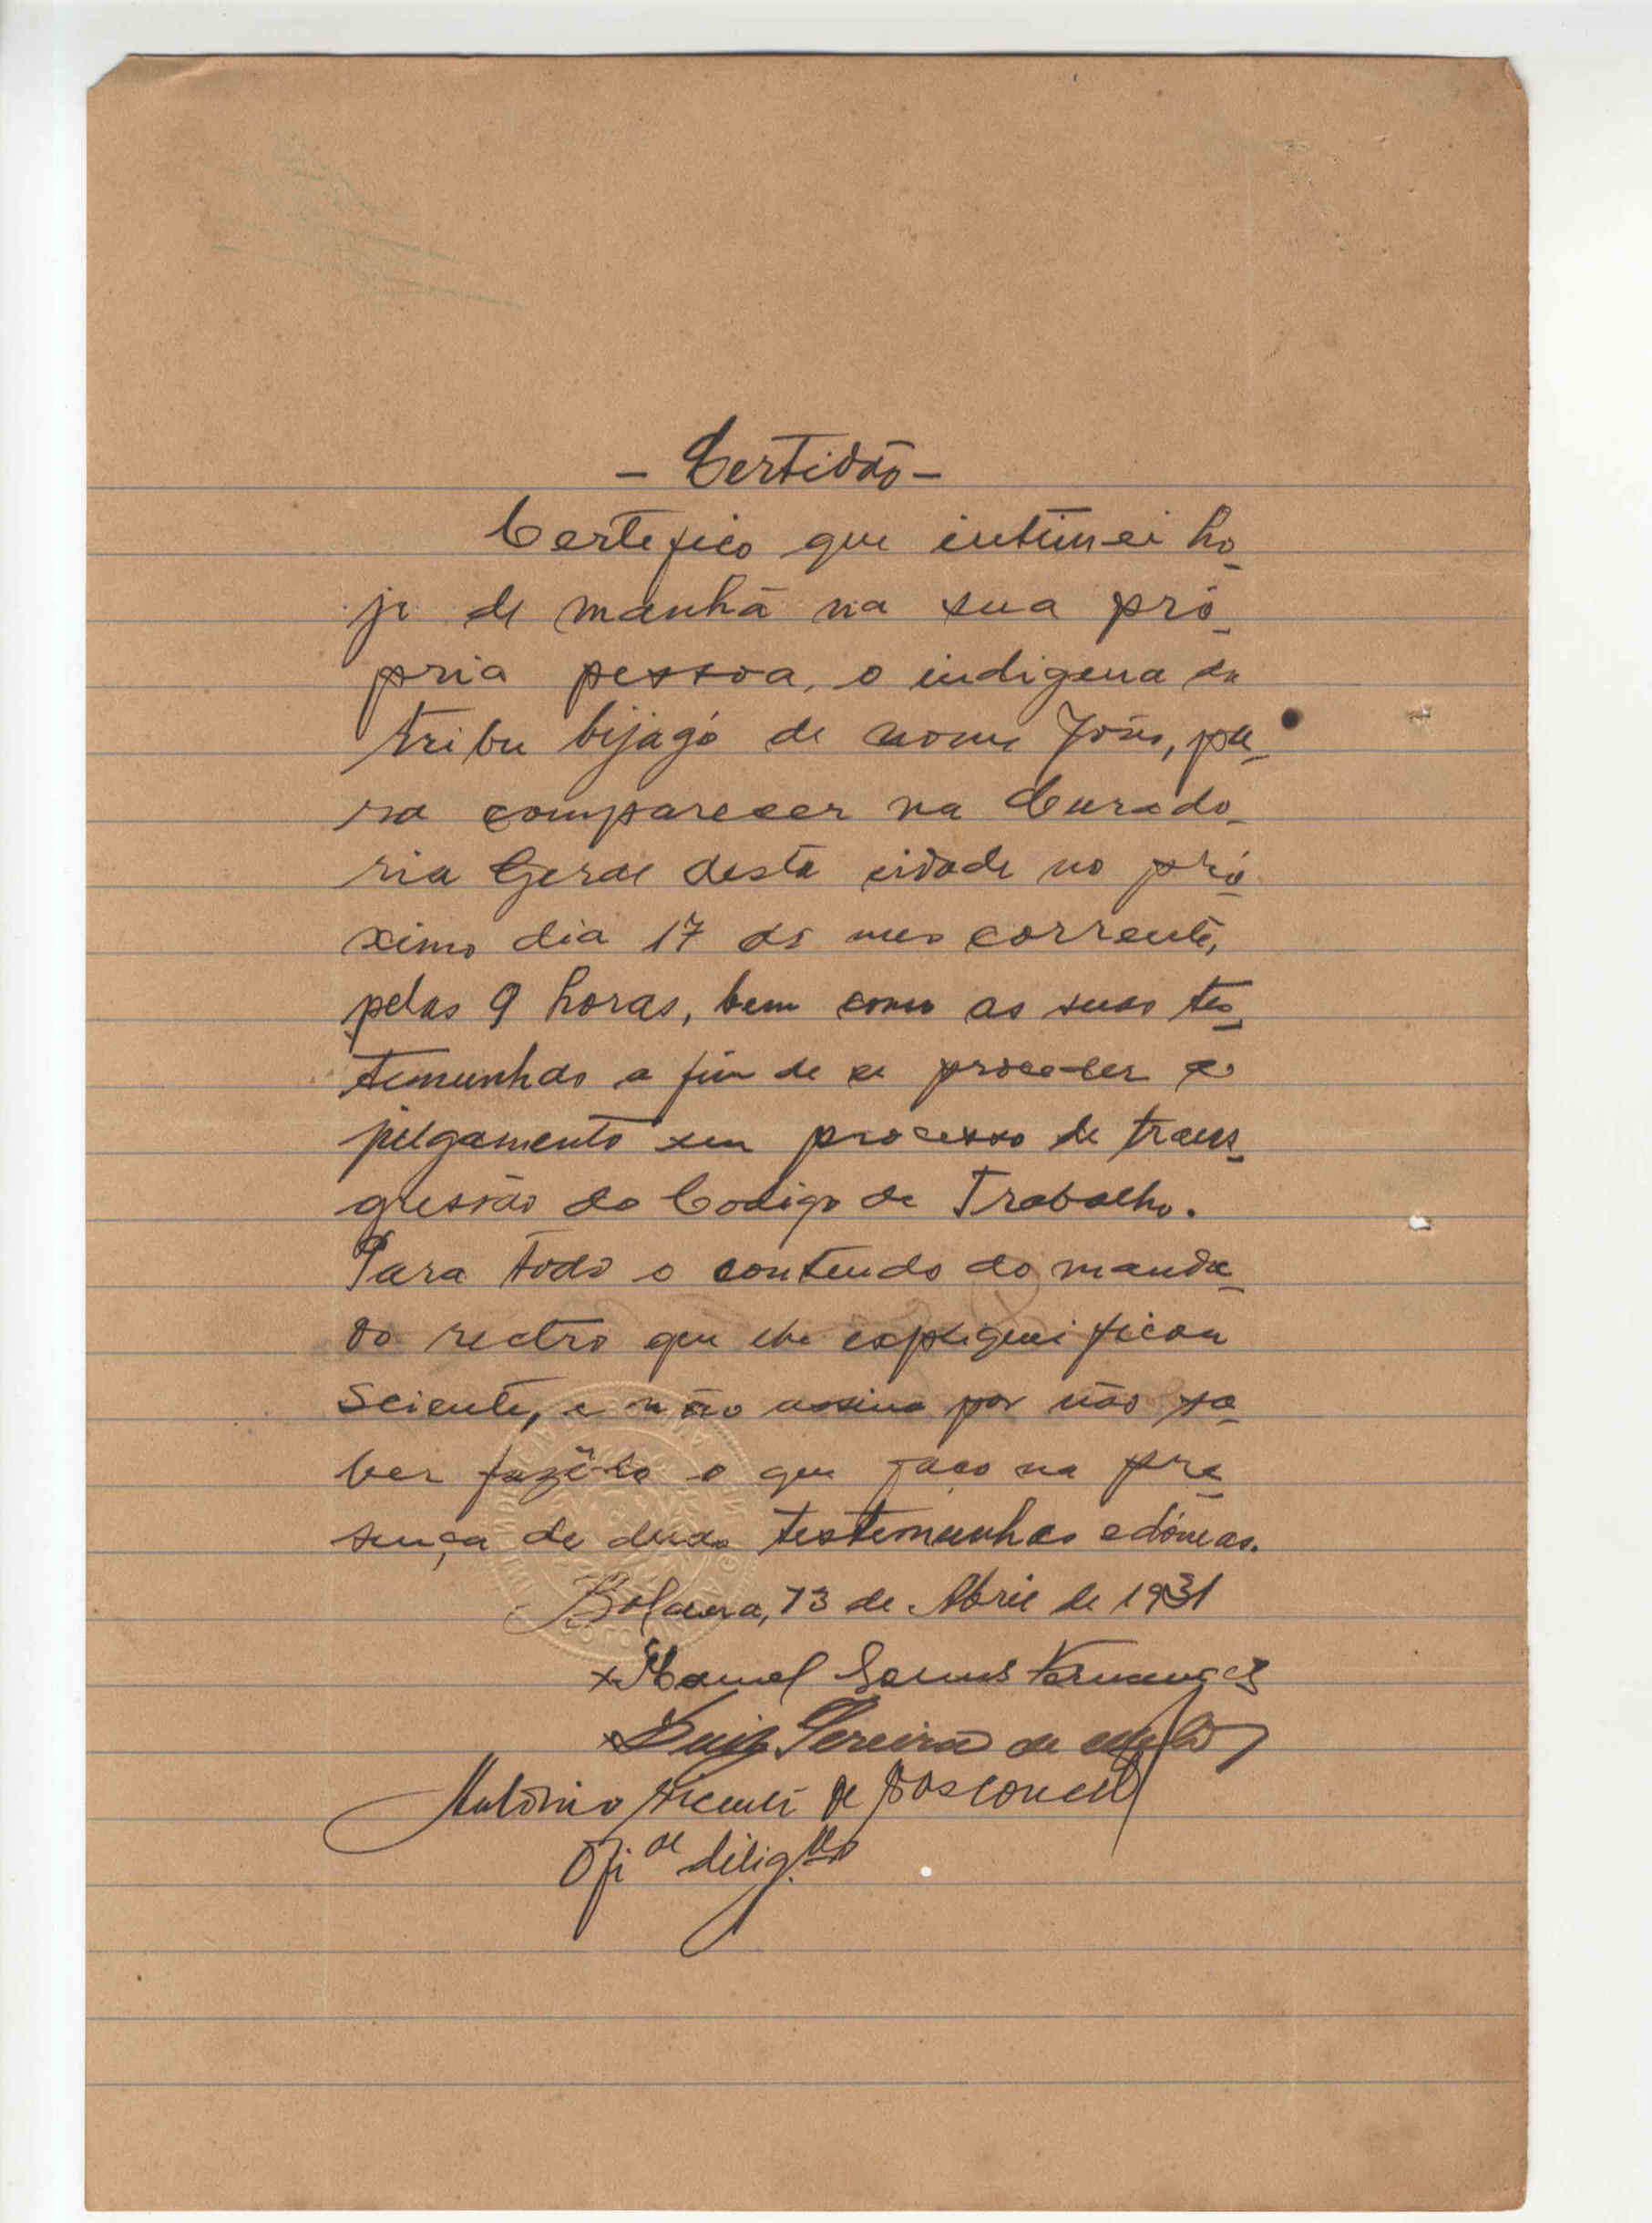 - Certidão -
Certefico que intimei ho-
je de manhã na sua pró-
pria pessoa, o indigena da
tribu bijagó de nome João, pa-
ra comparecer na Curado-
ria Geral desta cidade no pró-
ximo dia 17 do mes corrente,
pelas 9 horas, bem como as suas tes-
temunhas a fim de se proceder ao
julgamento seu processo de trans-
gressão do Codigo de Trabalho.
Para todo o contendo do manda-
do rectro que lhe expliquei ficou
sciente, e não assina por não sa-
ber fazê-lo o que faço na pre-
sença de duas testemunhas edóneas.
Bolama, 13 de Abril de 1931
x Manuel Fernandes
x Luiz Pereira de
António Vicente de Vasconcel
Ofi al dilig